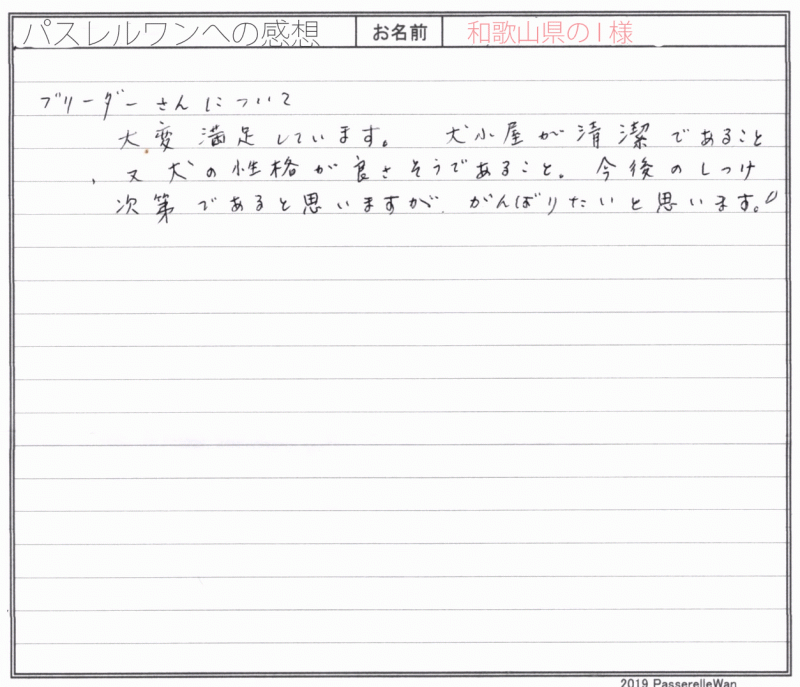 パスレルワンへの感想 お名前 和歌山県のI様
ブリーダーさんについて
大変満足しています。 犬小屋が清潔であること
、又犬の性格が良さそうであること。今後のしつけ
次第であると思いますが、がんばりたいと思います。
2019 PasserelleWan